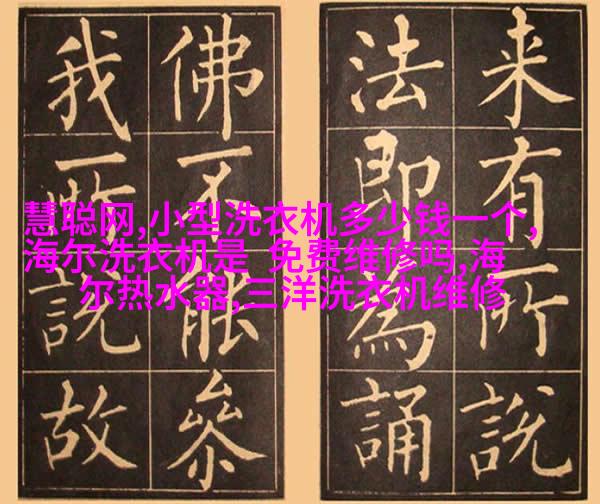 来有所說
法即為誦
佛不能叅
我所說故
慧聪网,小型洗衣机多少钱一个,
海尔洗衣机是 免费维修吗,海
尔热水器,三洋洗衣机维修